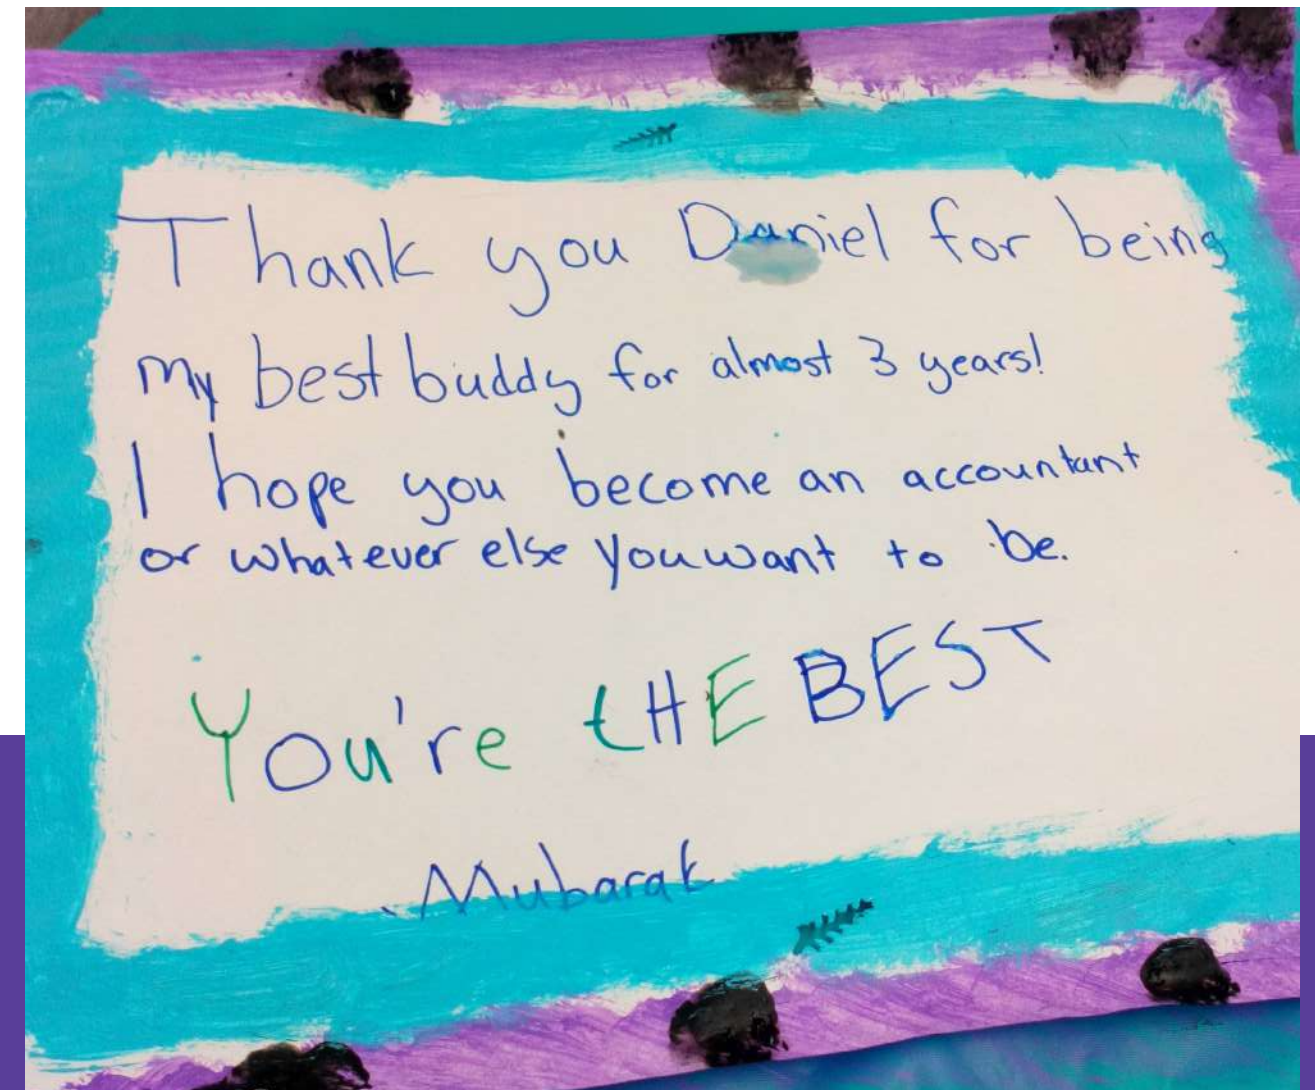 Thank you Daniel for being
my best buddy for almost 3 years!
I hope you become an accountant
or whatever else you want to be.
You're tHE BEST
Mubarak